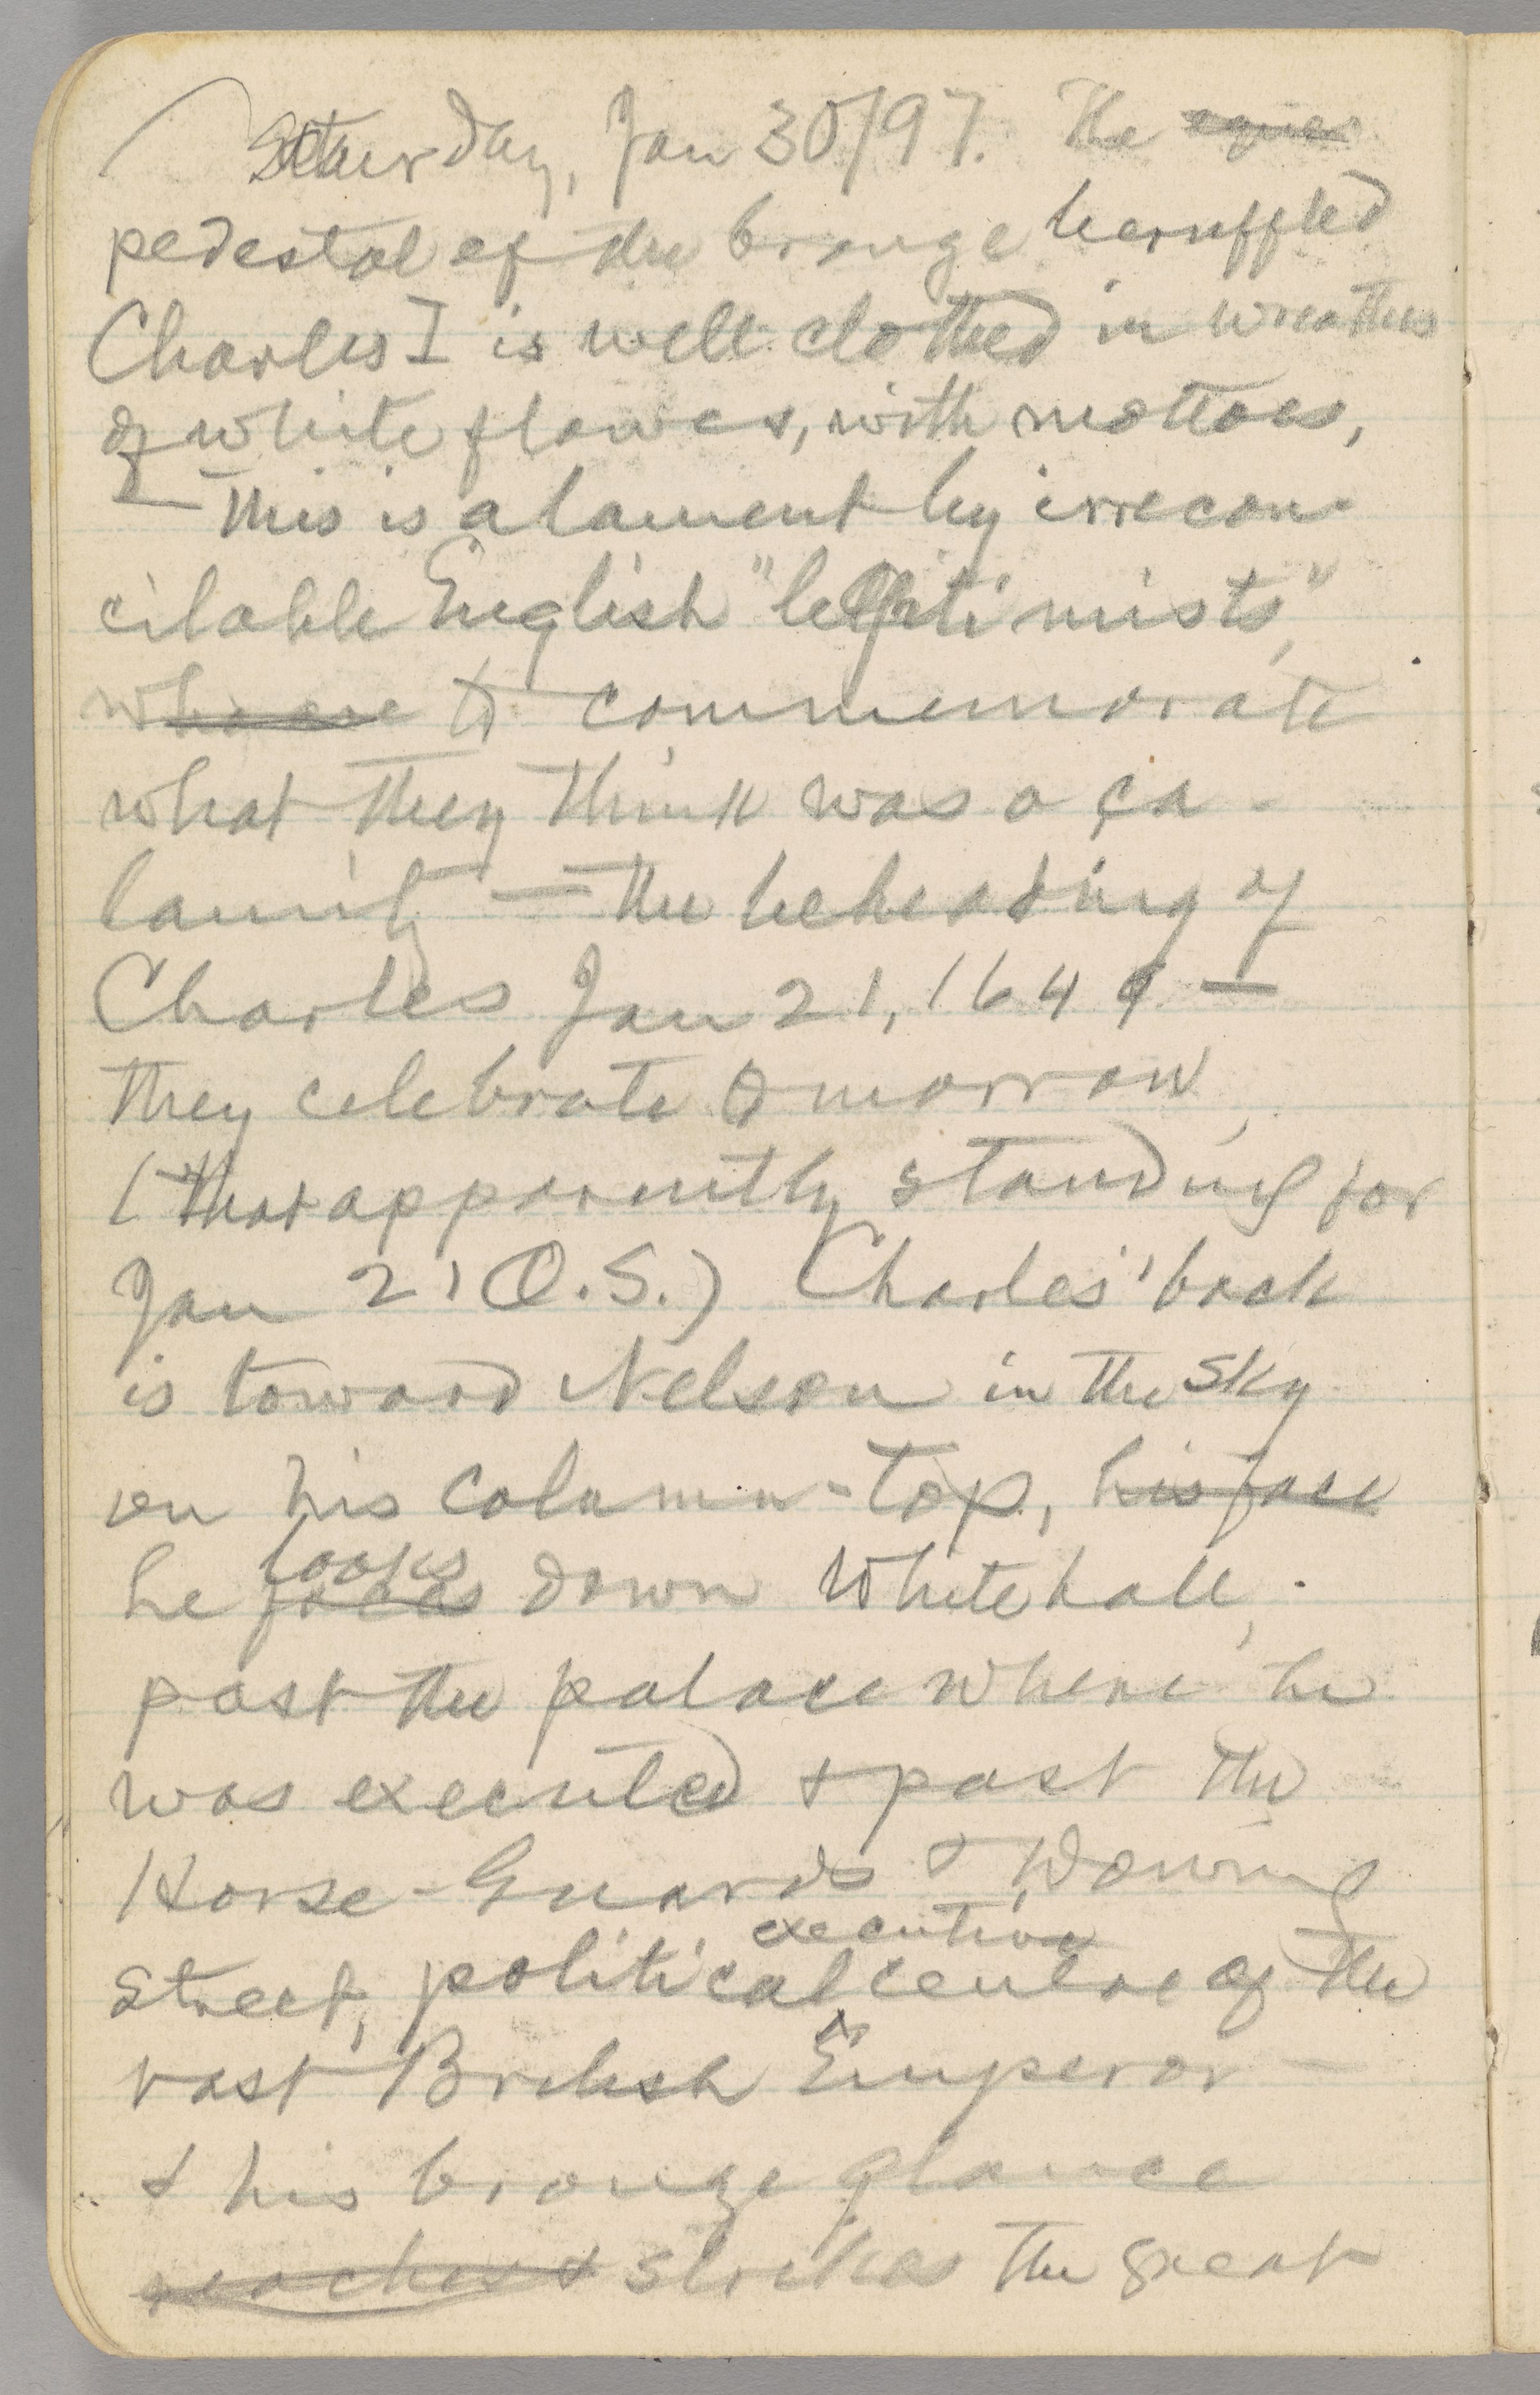 Saturday, Jan 30/97. The eques
pedestal of the bronze beruffled
Charles I is well clothed in wreathes
of white flowers, with mottoes,
This is a lament by irrecon-
cilable English "legitimists",
who are to commemorate
what they think was a ca-
lamity — the beheading of
Charles Jan 21, 1649 —
they celebrate tomorrow,
(that apparently standing for
Jan 21 O.S.) Charles' back
is toward Nelson in the sky
on his column-top, his face
he faces looks down Whitehall,
past the palace where he
was executed & past the
Horse-Guards & Downing
street, political executive centre of the
vast British Emperor —
& his bronze glance
reaches & strikes the great